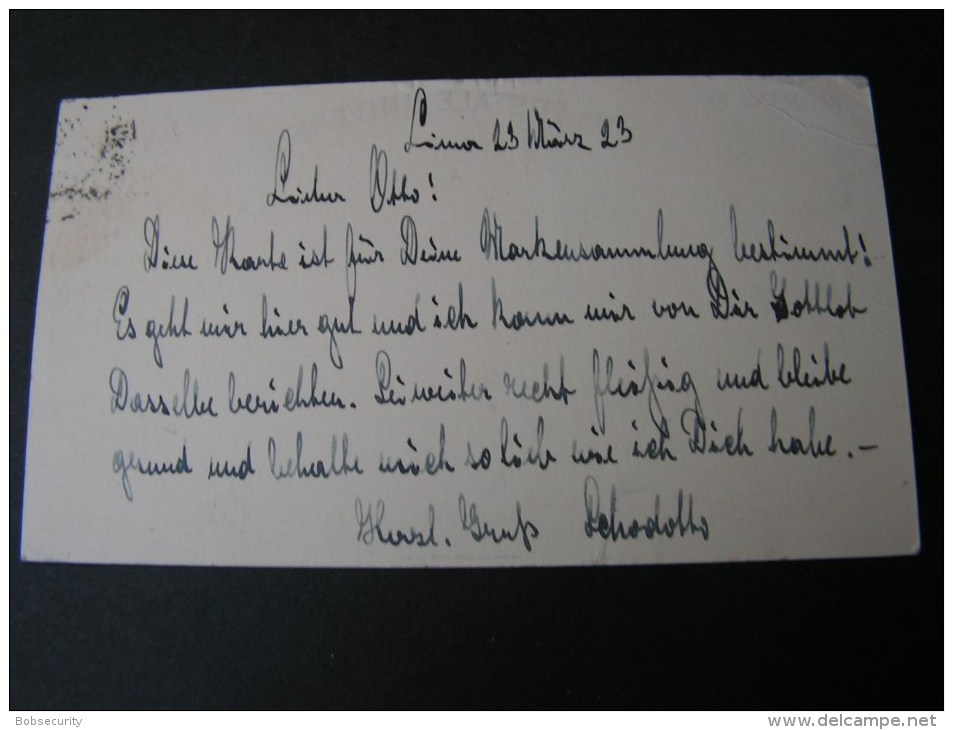 Lima 23 März 23
Lieber Otto!
Diese Karte ist für Deine Markensammlung bestimmt!
Es geht mir hier gut und ich kann mir von Dir Gottlob
Dasselbe berichten. Sei weiter recht fleißig und bleibe
gesund und behalte mich so lieb wie ich Dich habe. –
Herzl. Gruß
Bobsecurity
www.delcampe.net